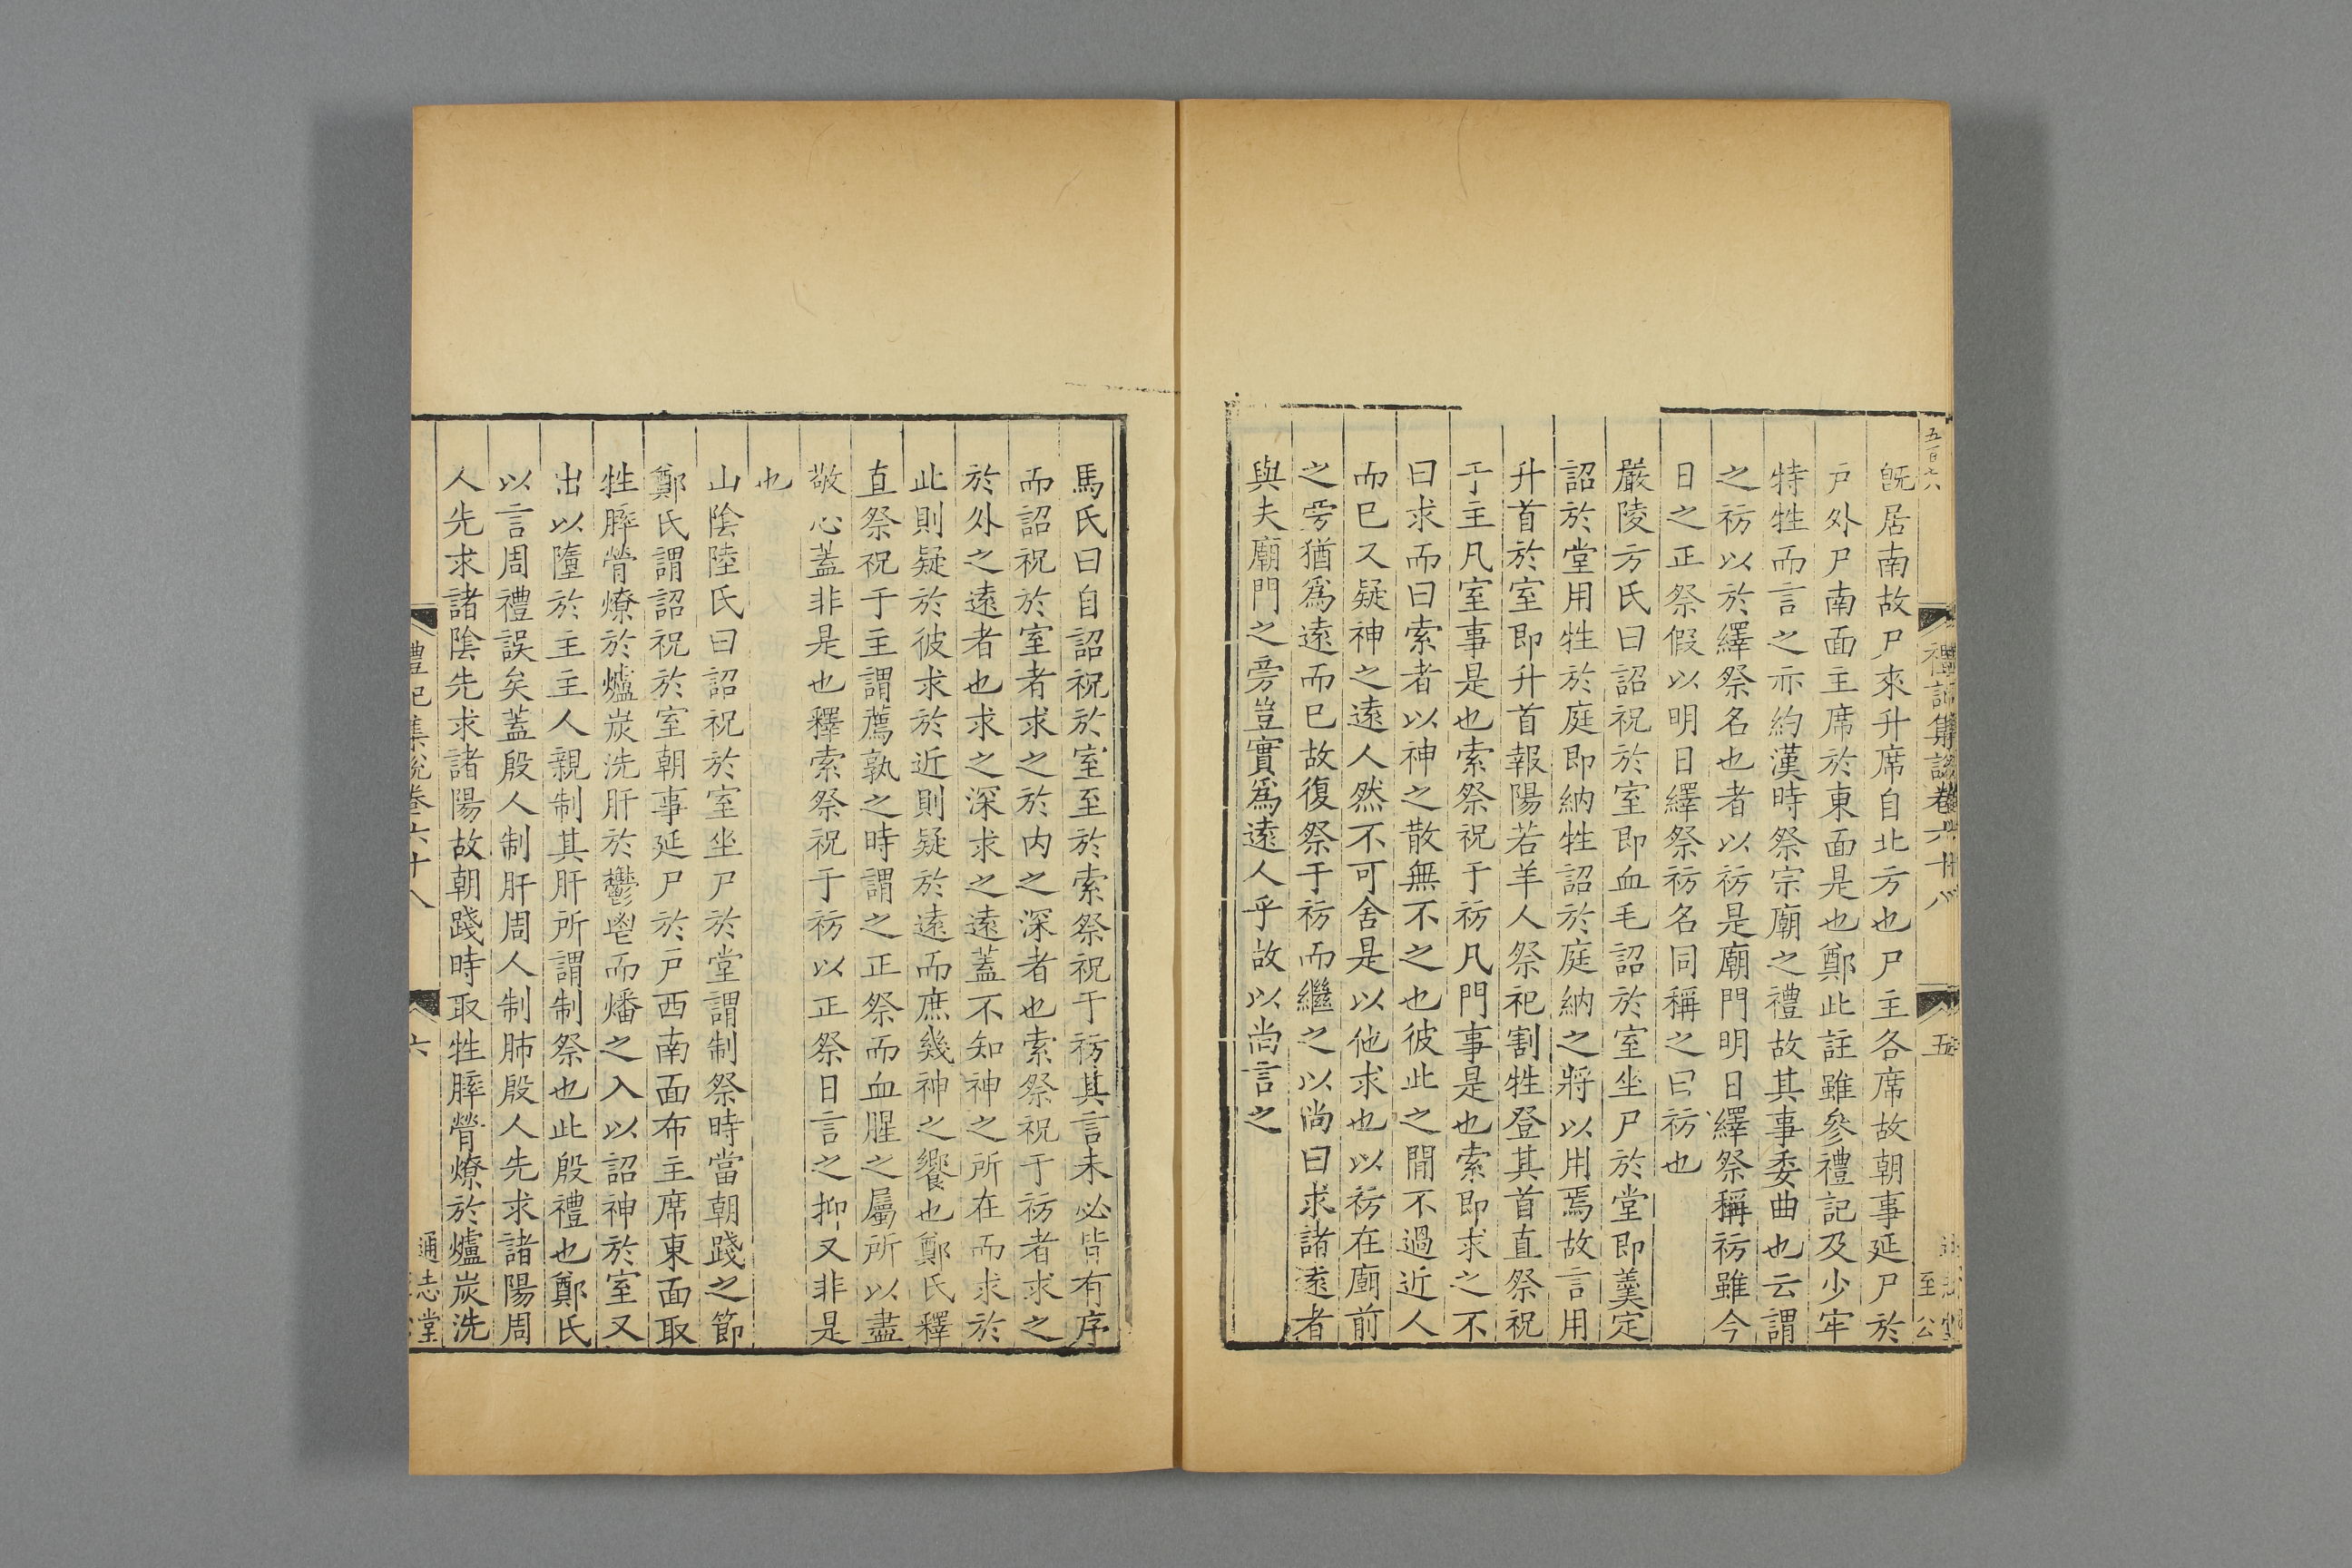 五百六
禮記集說卷六十八
五
至公
旣居南故尸來升席自北方也尸主各席故朝事延尸於
戸外尸南面主席於東面是也鄭此註雖參禮記及少牢
特牲而言之亦約漢時祭宗廟之禮故其事委曲也云謂
之祊以於繹祭名也者以祊是廟門明日繹祭稱祊雖今
日之正祭假以明日繹祭祊名同稱之曰祊也
嚴陵方氏曰詔祝於室即血毛詔於室坐尸於堂即羹定
詔於堂用牲於庭即納牲詔於庭納之將以用焉故言用
升首於室即升首報陽若羊人祭祀割牲登其首直祭祝
于主凡室事是也索祭祝于祊凡門事是也索即求之不
曰求而曰索者以神之散無不之也彼此之閒不過近人
而巳又疑神之遠人然不可舍是以他求也以祊在廟前
之旁猶爲遠而巳故復祭于祊而繼之以尚曰求諸遠者
與夫廟門之旁豈實爲遠人乎故以尚言之
馬氏曰自詔祝於室至於索祭祝于祊其言未必皆有序
而詔祝於室者求之於内之深者也索祭祝于祊者求之
於外之遠者也求之深求之遠蓋不知神之所在而求於
此則疑於彼求於近則疑於遠而庶幾神之饗也鄭氏釋
直祭祝于主謂薦孰之時謂之正祭而血腥之屬所以盡
敬心蓋非是也釋索祭祝于祊以正祭日言之抑又非是
也
山陰陸氏曰詔祝於室坐尸於堂謂制祭時當朝踐之節
鄭氏謂詔祝於室朝事延尸於戸西南面布主席東面取
牲膟膋燎於爐炭洗肝於鬱鬯而燔之入以詔神於室又
出以墮於主主人親制其肝所謂制祭也此殷禮也鄭氏
以言周禮誤矣蓋殷人制肝周人制肺殷人先求諸陽周
人先求諸陰先求諸陽故朝踐時取牲膟膋燎於爐炭洗
禮記集說卷六十八
六
通志堂